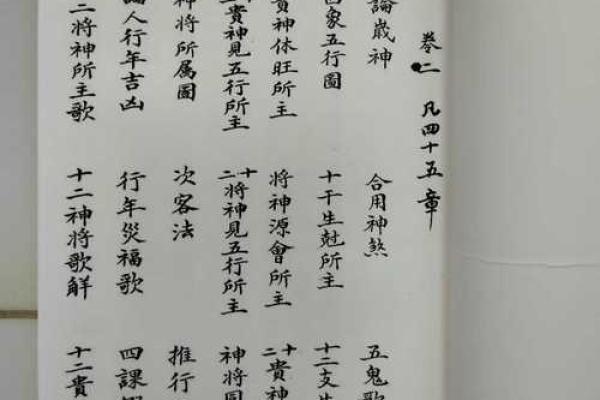 卷二 凡四十五章
論歲神 合用神煞 五鬼歌
五行圖 十干生尅所主 十二支生
貴神休旺所主 將神源會所主 十二貴神
貴神見五行所主 十二將神見五行所主 神將
神將所属圖 次客法 推行
人行年吉凶 行年災福歌 四課
二將神所主歌 十二神將歌觧 十二貴